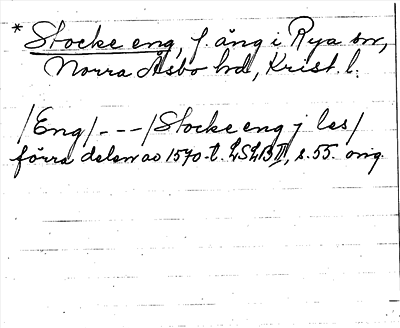 * Stocke eng, f. äng i Rya sn,
Norra Åsbo hd, Krist. l.
/Eng/ - - - /Stocke eng j las/
förra delen av 1570-t. LSLB II, s. 55. orig.